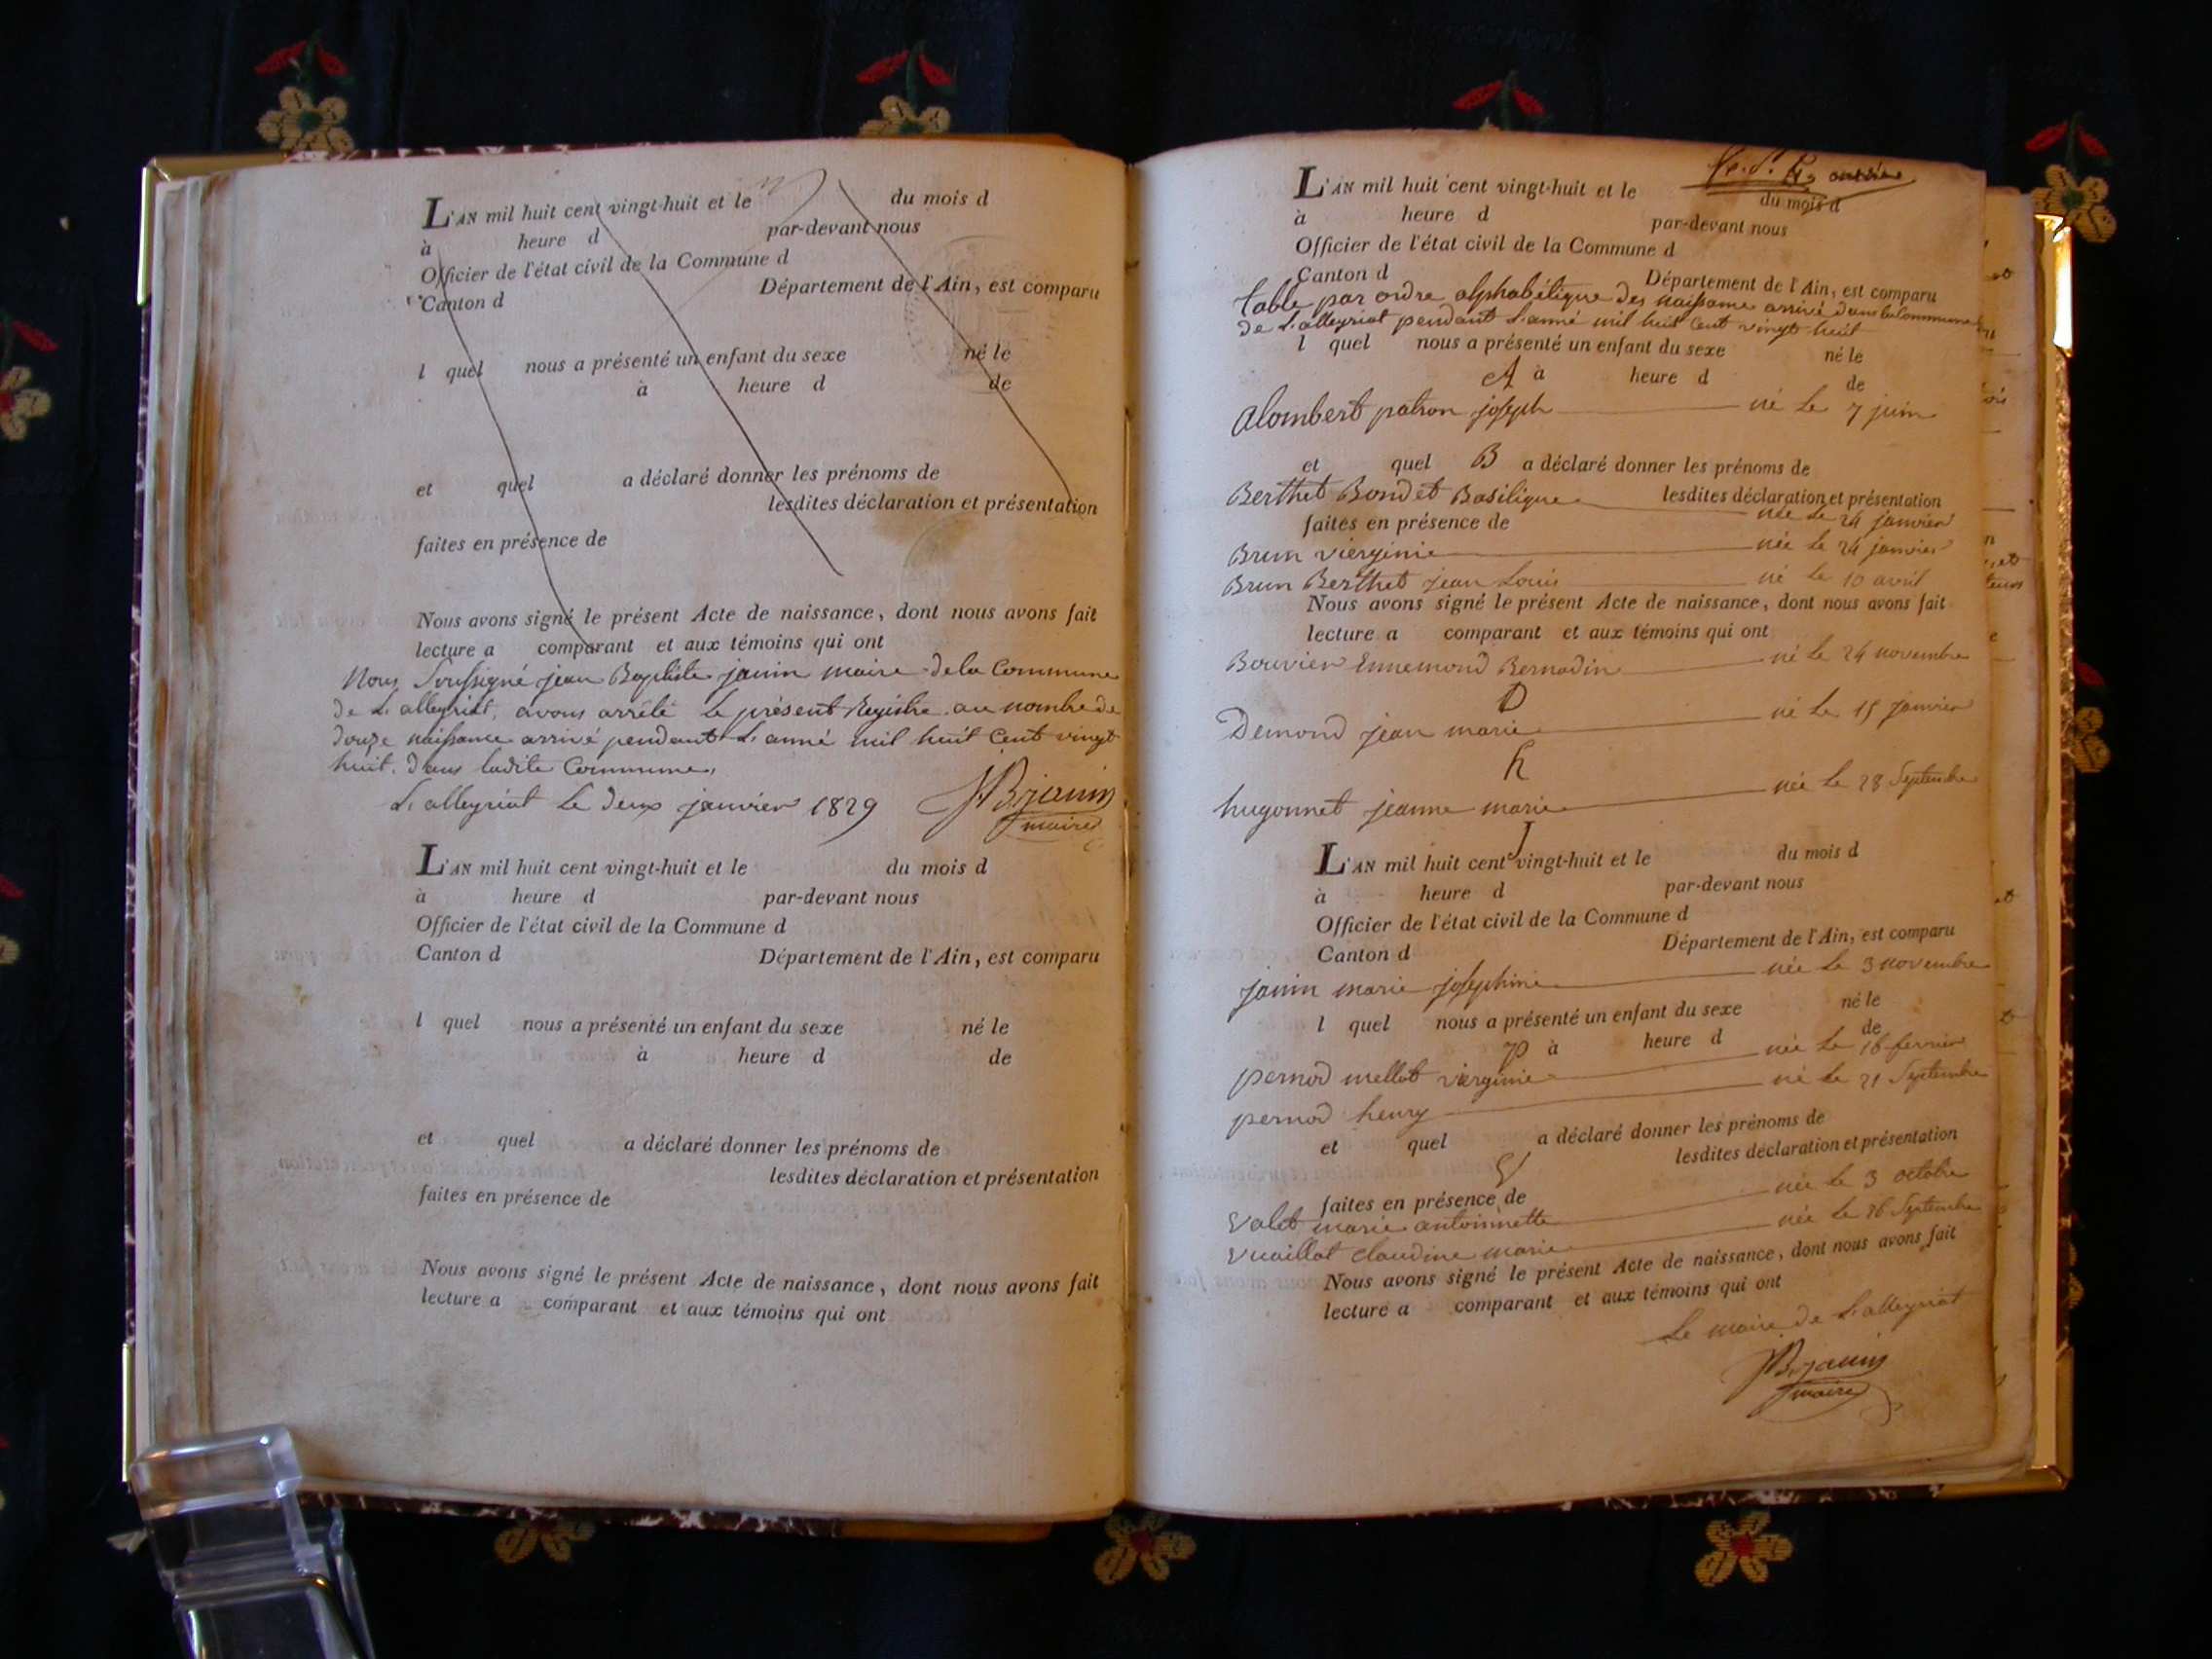 L'AN mil huit cent vingt-huit et le du mois d
à heure d par-devant nous
Officier de l'état civil de la Commune d
Canton d Département de l'Ain, est comparu
l quel nous a présenté un enfant du sexe né le
à heure d de
et quel a déclaré donner les prénoms de
lesdites déclaration et présentation
faites en présence de
Nous avons signé le présent Acte de naissance, dont nous avons fait
lecture a comparant et aux témoins qui ont
Nous Soussigné jean Baptiste janin maire de la Commune
de L'alleyriat, avons arrêté le présent Registre au nombre de
douze naissance arrivé pendant L'anné mil huit Cent vingt
huit. dans ladite Commune,
L'alleyriat Le deux janvier 1829 JBjanin
maire
L'AN mil huit cent vingt-huit et le du mois d
à heure d par-devant nous
Officier de l'état civil de la Commune d
Canton d Département de l'Ain, est comparu
l quel nous a présenté un enfant du sexe né le
à heure d de
et quel a déclaré donner les prénoms de
lesdites déclaration et présentation
faites en présence de
Nous avons signé le présent Acte de naissance, dont nous avons fait
lecture a comparant et aux témoins qui ont
L'AN mil huit cent vingt-huit et le du mois d
à heure d par-devant nous
Officier de l'état civil de la Commune d
Canton d Département de l'Ain, est comparu
Table par ordre alphabétique des naissance arrivé dans la Commune
de L'alleyriat pendant L'anné mil huit Cent vingt huit
l quel nous a présenté un enfant du sexe né le
A à heure d de
Alombert patron joseph né Le 7 juin
et quel B a déclaré donner les prénoms de
Berthet Bondet Basilique lesdites déclaration et présentation
née Le 24 janvier
faites en présence de
Brun viergínie née Le 24 janvier
Brun Berthet jean Louis né Le 10 avril
Nous avons signé le présent Acte de naissance, dont nous avons fait
lecture a comparant et aux témoins qui ont
Bouvier Ennemond Bernadin né Le 24 novembre
D
Demond jean marie né Le 15 janvier
h
hugonnet jeanne marie née Le 28 Septembre
J
L'AN mil huit cent vingt-huit et le du mois d
à heure d par-devant nous
Officier de l'état civil de la Commune d
Canton d Département de l'Ain, est comparu
janin marie josephine née Le 3 novembre
l quel nous a présenté un enfant du sexe né le
P à heure d de
pernod mellot virginie née Le 16 fevrier
pernod henry né Le 21 Septembre
et quel a déclaré donner les prénoms de
V lesdites déclaration et présentation
faites en présence de
Valet marie antoinnette née Le 3 octobre
Vuaillat claudine marie née Le 26 Septembre
Nous avons signé le présent Acte de naissance, dont nous avons fait
lecture a comparant et aux témoins qui ont
Le maire de L'alleyriat
JBjanin
maire